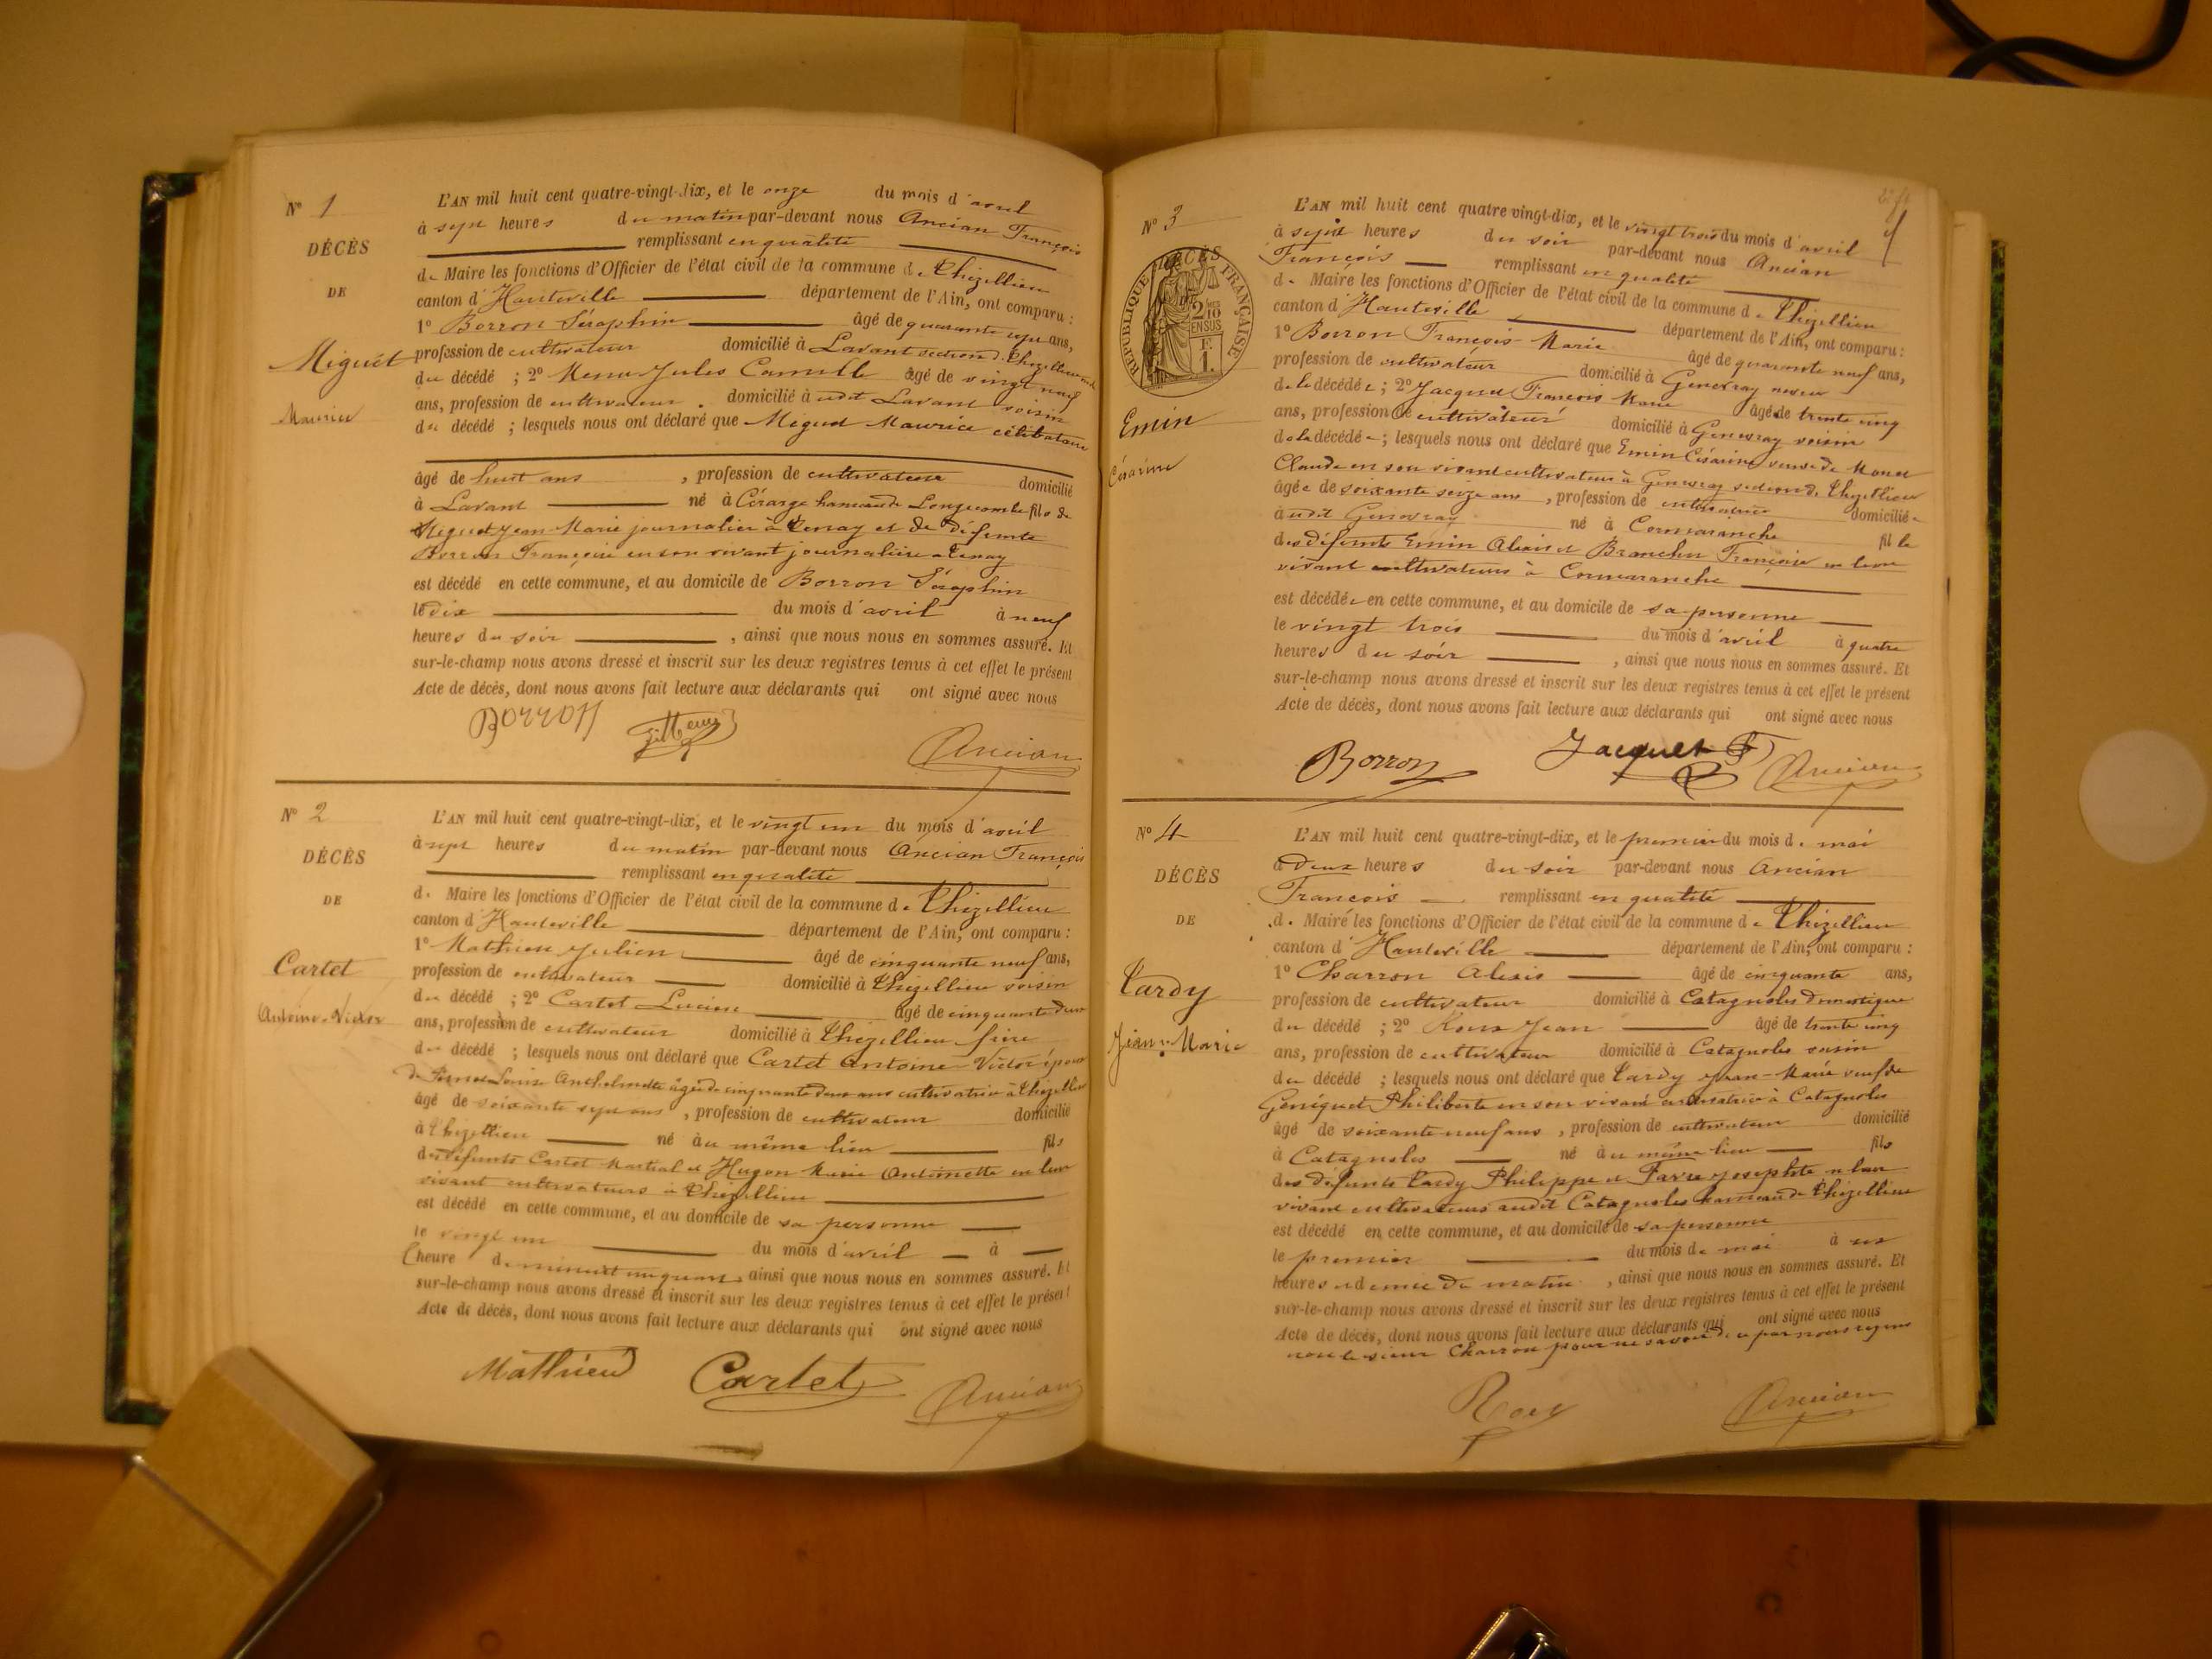 N° 1
DÉCÈS
DE
Miguet
Maurice
L'AN mil huit cent quatre-vingt-dix, et le onze du mois d'avril
à sept heures du matin par-devant nous Ancian François
remplissant en qualité
de Maire les fonctions d'Officier de l'état civil de la commune de Thézillieu
canton d'Hauteville département de l'Ain, ont comparu :
1° Borron Séraphin âgé de quarante sept ans,
profession de cultivateur domicilié à Lavant section de Thézillieu
du décédé ; 2° Jules Camille âgé de vingt neuf
ans, profession de cultivateur domicilié à udit Lavant voisin
du décédé ; lesquels nous ont déclaré que Miguet Maurice célibataire
âgé de huit ans , profession de cultivateur domicilié
à Lavant né à Cérarge hameau de Longecombe fils de
Miguet Jean Marie journalier à Tenay et de défunte
Borron Françoise en son vivant journalière à Tenay
est décédé en cette commune, et au domicile de Borron Séraphin
le dix du mois d'avril à neuf
heures du soir , ainsi que nous nous en sommes assuré. Et
sur-le-champ nous avons dressé et inscrit sur les deux registres tenus à cet effet le présent
Acte de décès, dont nous avons fait lecture aux déclarants qui ont signé avec nous
Borron
Ancian
N° 2
DÉCÈS
DE
Cartet
Antoine-Victor
L'AN mil huit cent quatre-vingt-dix, et le vingt un du mois d'avril
à sept heures du matin par-devant nous Ancian François
remplissant en qualité
de Maire les fonctions d'Officier de l'état civil de la commune de Thézillieu
canton d'Hauteville département de l'Ain, ont comparu :
1° Mathieu Julien âgé de cinquante neuf ans,
profession de cultivateur domicilié à Thézillieu voisin
du décédé ; 2° Cartet Lucien âgé de cinquante deux
ans, profession de cultivateur domicilié à Thézillieu frère
du décédé ; lesquels nous ont déclaré que Cartet Antoine-Victor époux
de Louise Anthelmette âgée de cinquante deux ans cultivatrice à Thézillieu
âgé de soixante sept ans , profession de cultivateur domicilié
à Thézillieu né au même lieu fils
des défunts Cartet Martial et Hugon Marie Antoinette en leur
vivant cultivateurs à Thézillieu
est décédé en cette commune, et au domicile de sa personne
le vingt un du mois d'avril à
heure de minuit un quart ainsi que nous nous en sommes assuré. Et
sur-le-champ nous avons dressé et inscrit sur les deux registres tenus à cet effet le présent
Acte de décès, dont nous avons fait lecture aux déclarants qui ont signé avec nous
Mathieu Cartet Ancian
N° 3
DÉCÈS
RÉPUBLIQUE FRANÇAISE
2/10
EN SUS
F.
1.
Emin
Césarine
L'AN mil huit cent quatre-vingt-dix, et le vingt trois du mois d'avril
à sept heures du soir par-devant nous Ancian
François remplissant en qualité
de Maire les fonctions d'Officier de l'état civil de la commune de Thézillieu
canton d'Hauteville département de l'Ain, ont comparu :
1° Borron François-Marie âgé de quarante neuf ans,
profession de cultivateur domicilié à Genevray neveu
de la décédée ; 2° Jacquet François Marie âgé de trente cinq
ans, profession de cultivateur domicilié à Genevray voisin
de la décédée ; lesquels nous ont déclaré que Emin Césarine veuve de
Claude en son vivant cultivateur à Genevray section de Thézillieu
âgée de soixante seize ans , profession de cultivatrice domiciliée
à udit Genevray né à Cormaranche fille
des défunts Emin Alexis et Françoise en leur
vivant cultivateurs à Cormaranche
est décédée en cette commune, et au domicile de sa personne
le vingt trois du mois d'avril à quatre
heures du soir , ainsi que nous nous en sommes assuré. Et
sur-le-champ nous avons dressé et inscrit sur les deux registres tenus à cet effet le présent
Acte de décès, dont nous avons fait lecture aux déclarants qui ont signé avec nous
Borron Jacquet F Ancian
N° 4
DÉCÈS
DE
Tardy
Jean-Marie
L'AN mil huit cent quatre-vingt-dix, et le premier du mois de mai
à deux heures du soir par-devant nous Ancian
François remplissant en qualité
de Maire les fonctions d'Officier de l'état civil de la commune de Thézillieu
canton d'Hauteville département de l'Ain, ont comparu :
1° Charron Alexis âgé de cinquante ans,
profession de cultivateur domicilié à Catagnoles domestique
du décédé ; 2° Roux Jean âgé de trente cinq
ans, profession de cultivateur domicilié à Catagnoles voisin
du décédé ; lesquels nous ont déclaré que Tardy Jean-Marie veuf de
Géniquet Philiberte en son vivant cultivatrice à Catagnoles
âgé de soixante neuf ans , profession de cultivateur domicilié
à Catagnoles né au même lieu fils
des défunts Tardy Philippe et Favre Josephte en leur
vivant cultivateurs audit Catagnoles hameau de Thézillieu
est décédé en cette commune, et au domicile de sa personne
le premier du mois de mai à un
heures et demie du matin , ainsi que nous nous en sommes assuré. Et
sur-le-champ nous avons dressé et inscrit sur les deux registres tenus à cet effet le présent
Acte de décès, dont nous avons fait lecture aux déclarants qui ont signé avec nous
non le sieur Charron pour ne savoir de ce par nous requis
Roux Ancian